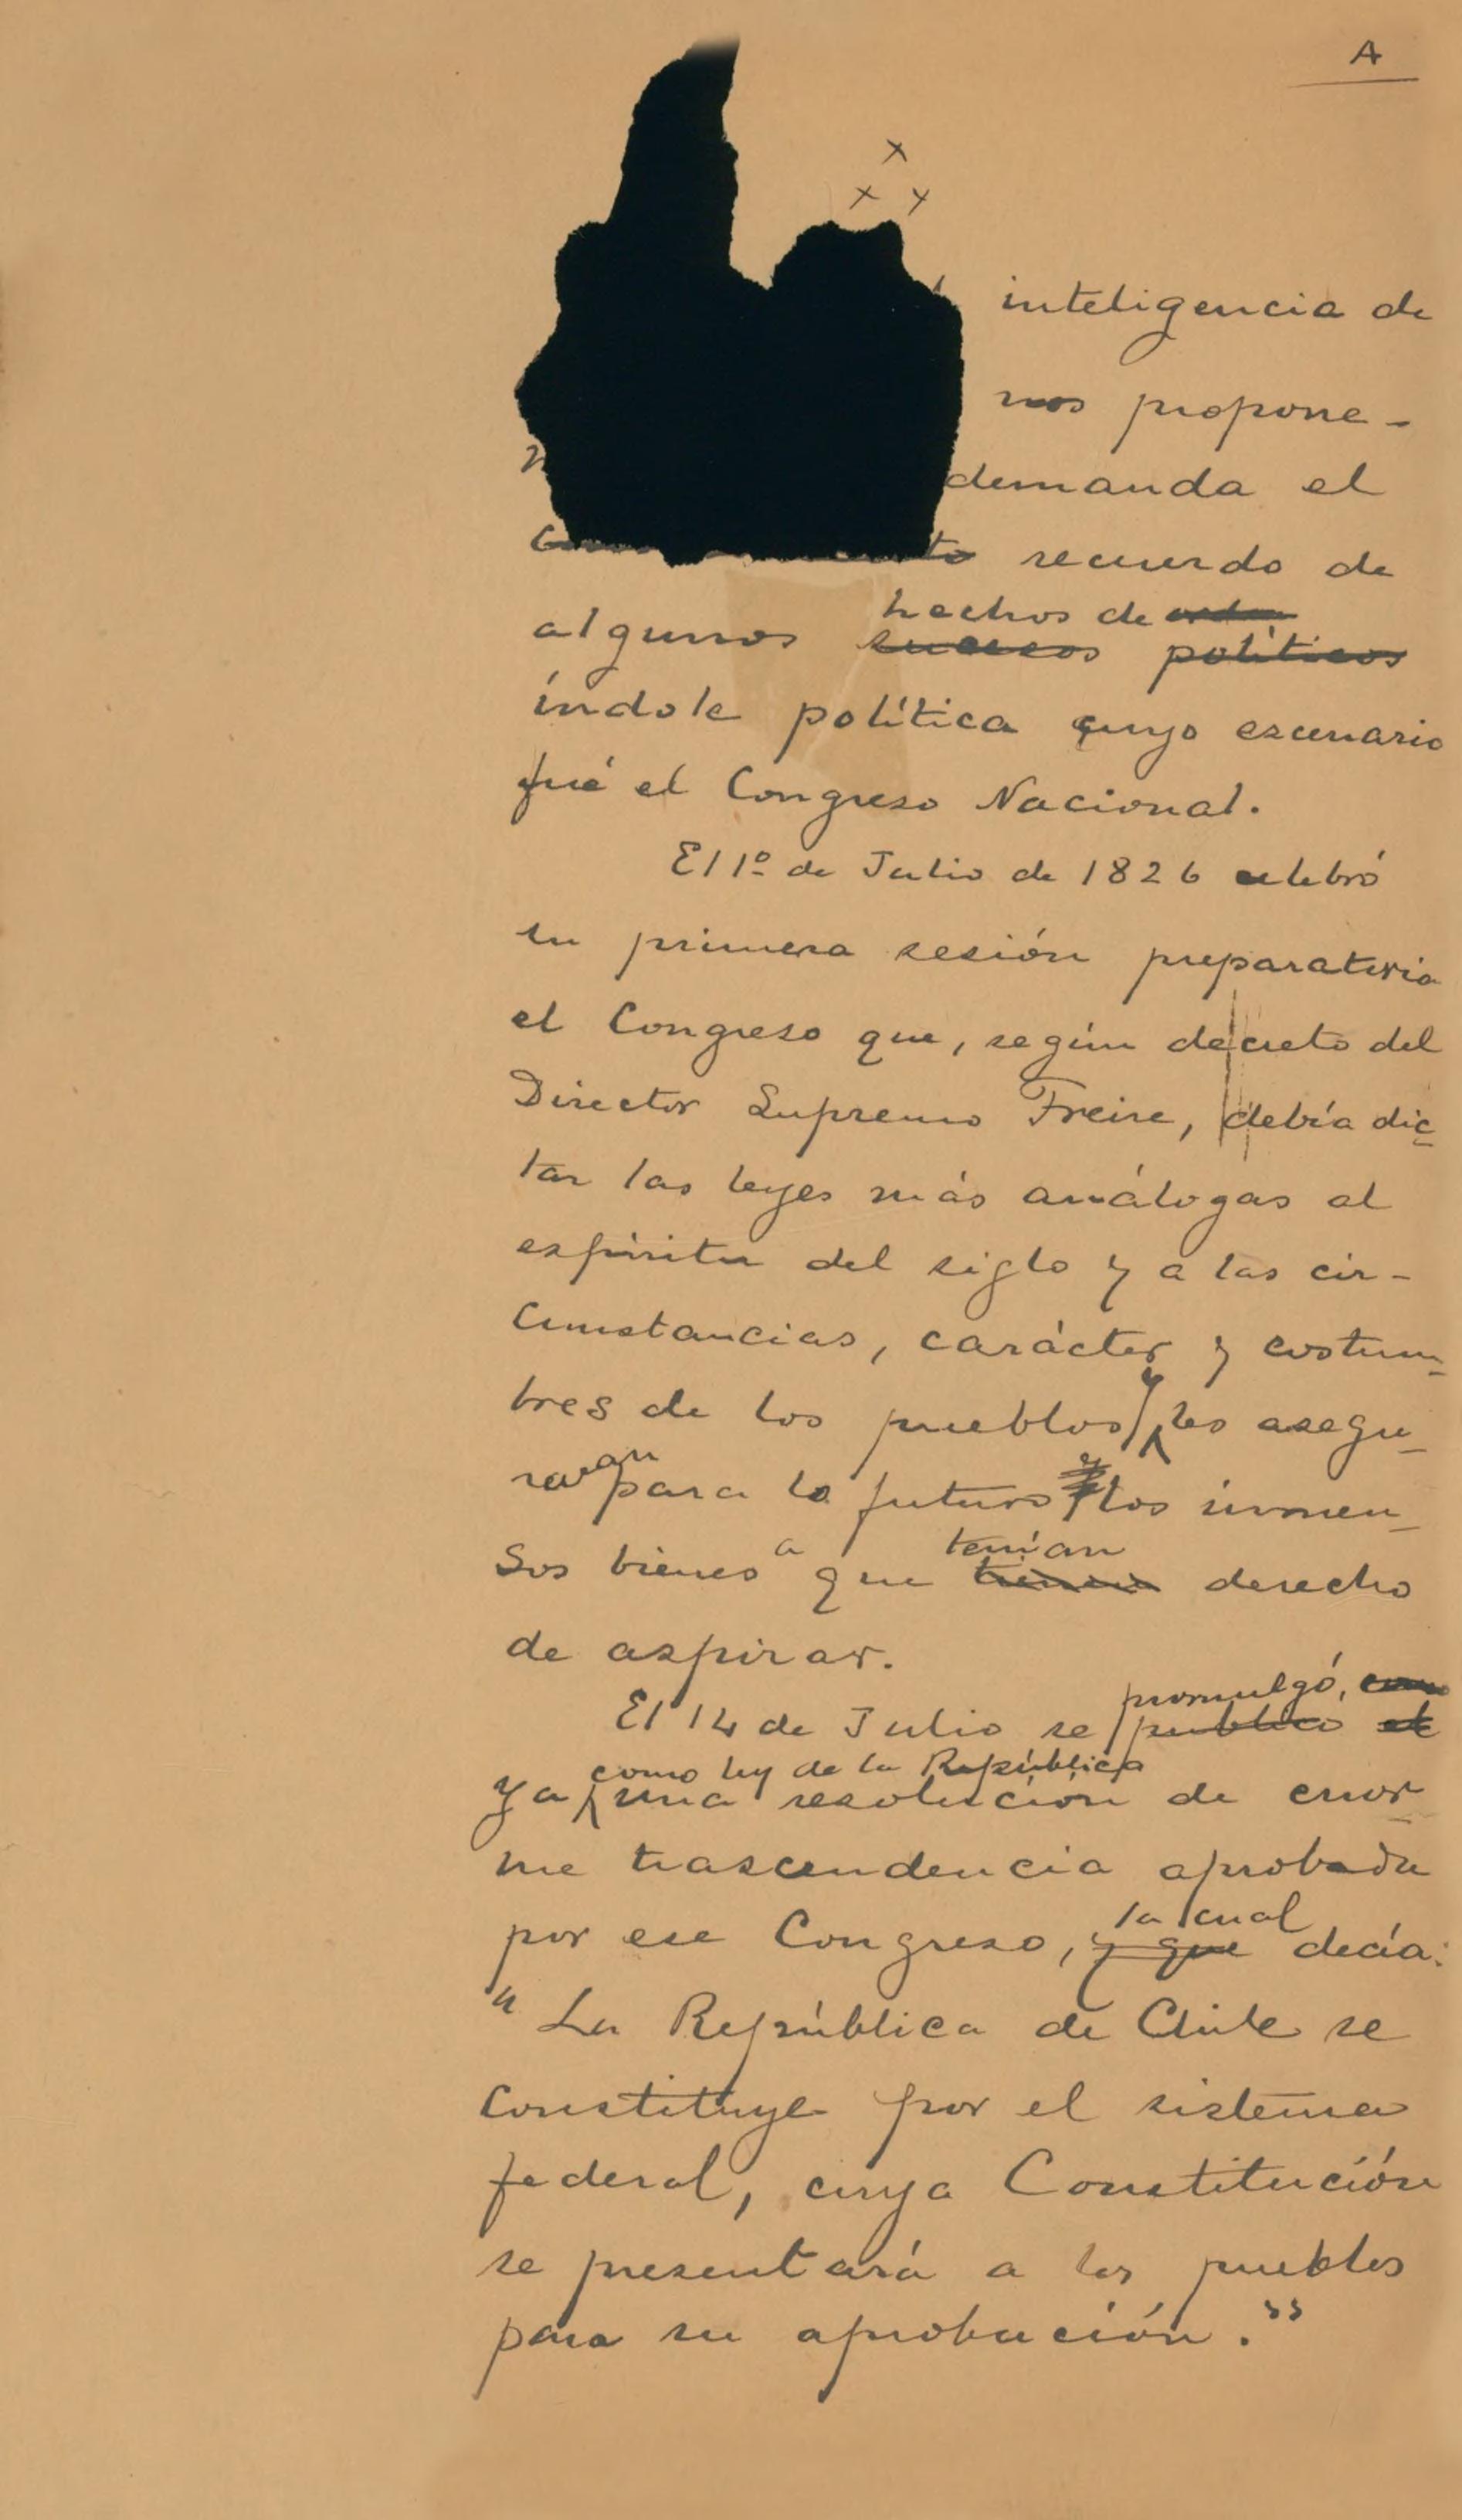 A
x
x x
inteligencia de
nos propone-
demanda el
to recuerdo de
hechos de orden
algunos sucesos políticos
índole política cuyo escenario
fué el Congreso Nacional.
El 1º de Julio de 1826 celebró
su primera sesión preparatoria
el Congreso que, según decreto del
Director Supremo Freire, debía dic-
tar las leyes más análogas al
espíritu del siglo y a las cir-
cunstancias, carácter y costum-
bres de los pueblos y les asegu-
raran para lo futuro los inmen-
tenían
sos bienes a que tienen derecho
de aspirar.
promulgó, como
El 14 de Julio se publico el
como ley de la República
ya una resolución de enor-
me trascendencia aprobada
la cual
por ese Congreso, y que decía:
"La República de Chile se
constituye por el sistema
federal, cuya Constitución
se presentará a los pueblos
para su aprobación."